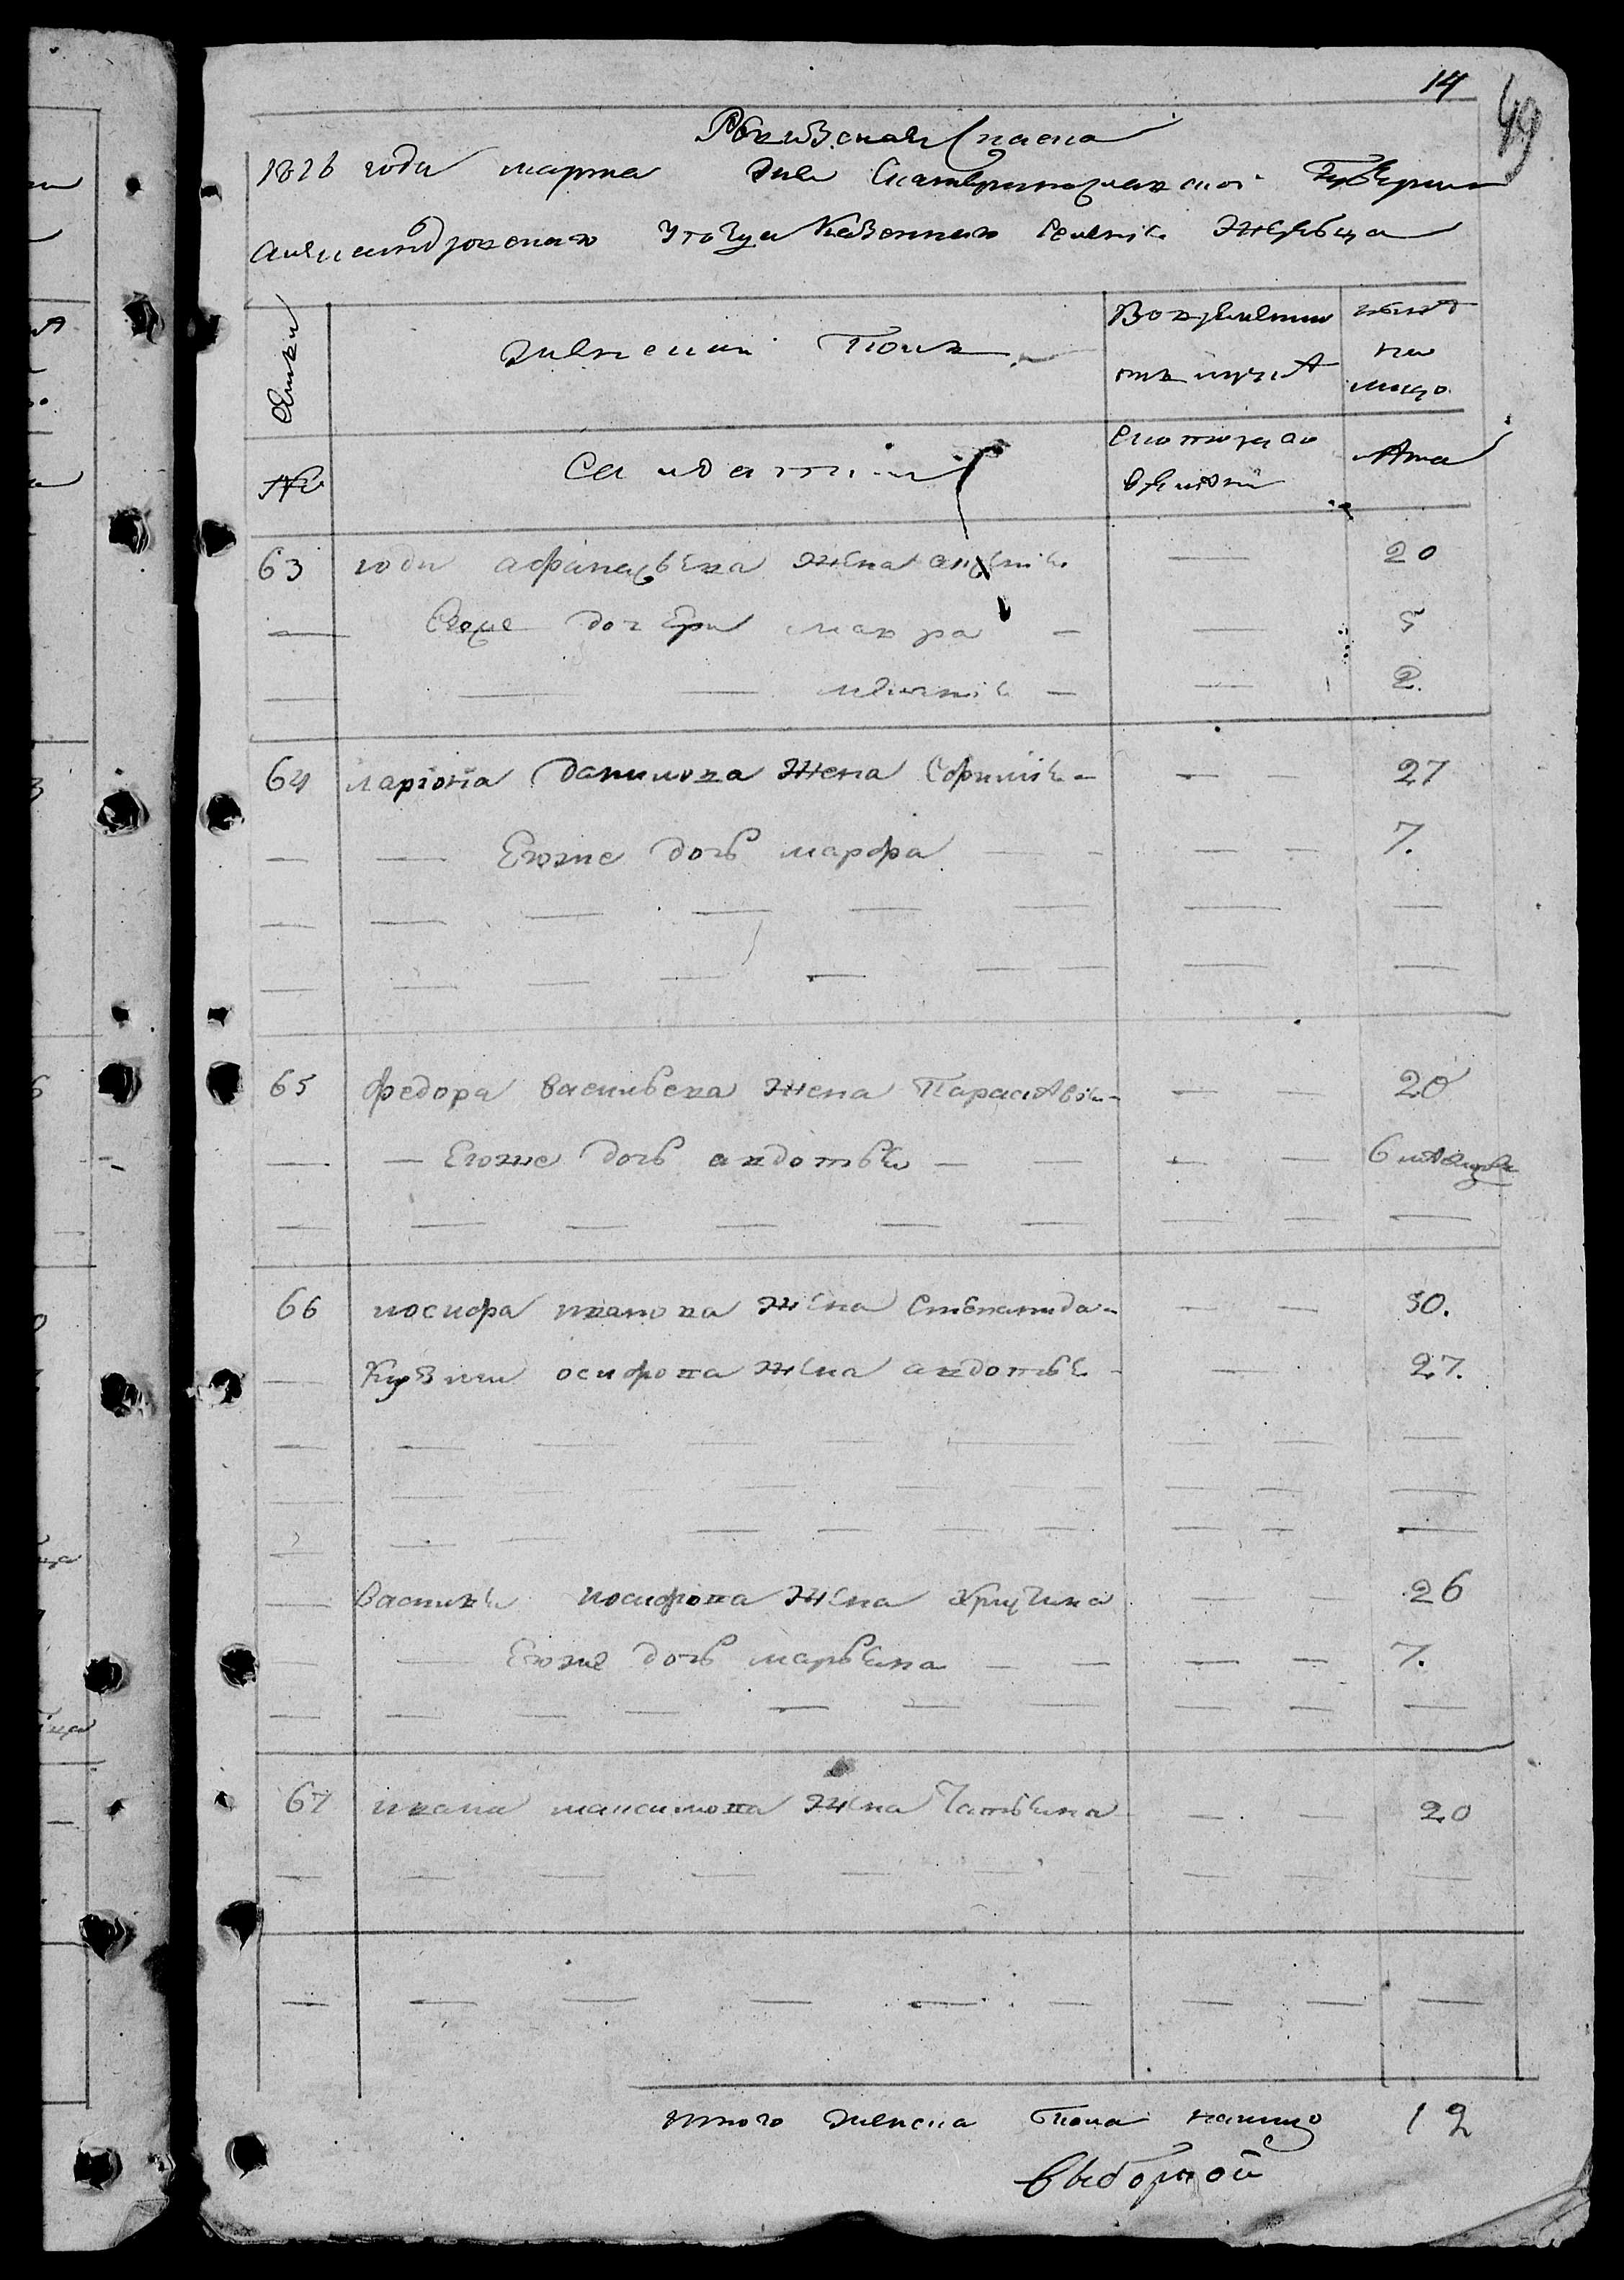 14
49
Ревизская Сказка
1816 года марта дня Екатеринославской Губернии
Александровского уезда Казенного селения Жеребца
Семьи
Женской Полъ
Во временной отлучке
ныне на лицо
№
Солдатки
Съ котораго времени
Лета
63 жена 20
— Егоже дочери макра — — 5
— — — — — 2.
64 лариона данилова жена Софиия — — 27
— — Егоже дочь марфа — — — — 7.
65 федора васильева жена Параскевия — — — 20
— — Егоже дочь авдотья — — — — 6 месяцовъ
66 иосифа иванова жена Степанида — — — 50.
— Кузмы осифова жена авдотья — — 27.
— Василия иосифова жена Хрисчина — — 26
— — Егоже дочь марьяна — — — — 7.
67 ивана максимова жена Татьяна — — 20
итого женска пола налицо 12
выборной